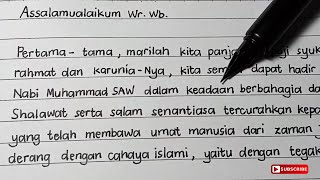 Assalamualaikum Wr. Wb.
Pertama-tama, marilah kita syuk
rahmat dan karunia-Nya, kita dapat hadir
Nabi Muhammad SAW dalam keadaan berbahagia da
Shalawat serta salam senantiasa tercurahkan kepa
yang telah membawa umat manusia dari zaman
derang dengan cahaya islami, yaitu dengan tegak
SUBSCRIBE